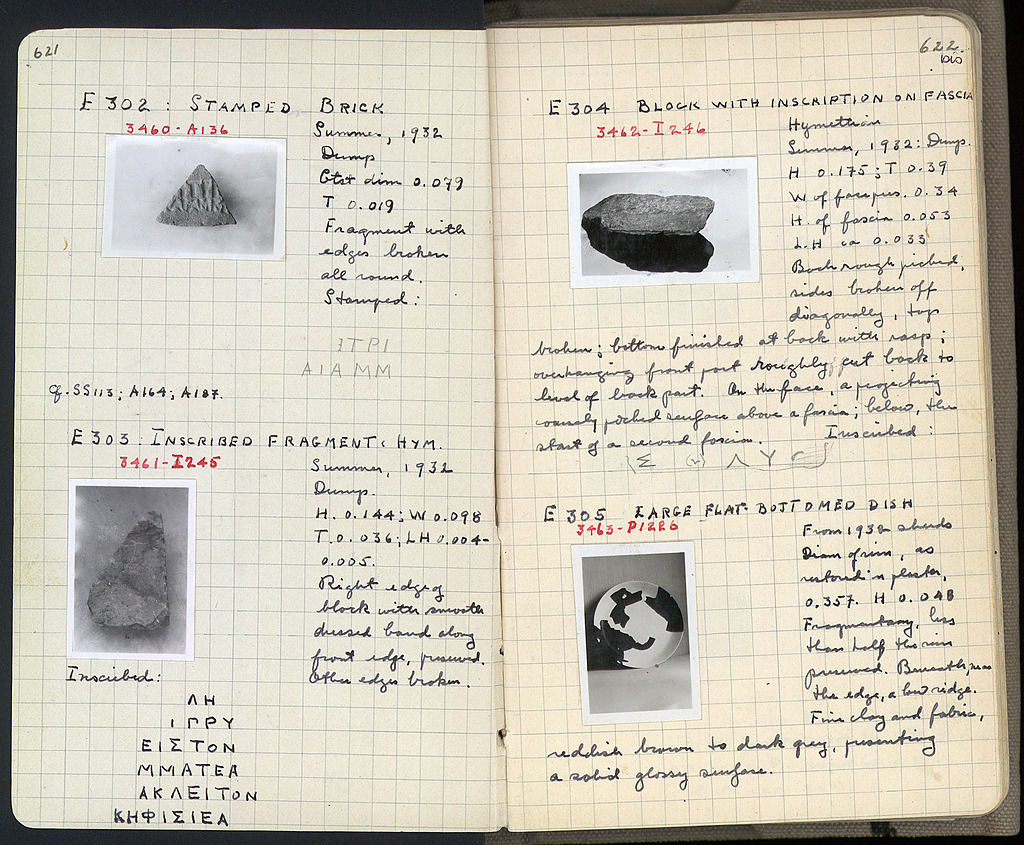 621
E 302 : STAMPED BRICK
3460 - A136
Summer, 1932
Dumps
Gtst dim 0.079
T 0.019
Fragment with
edges broken
all round.
Stamped:
ΑΙΑΜΜ
cf. SS113; A164; A187.
E 303 : INSCRIBED FRAGMENT: HYM.
3461 - I245
Summer, 1932
Dumps.
H. 0.144; W 0.098
T. 0.036; LH 0.004-
0.005.
Right edge of
block with smooth
dressed band along
front edge, preserved.
Other edges broken.
Inscribed:
ΛΗ
ΙΓΡΥ
ΕΙΣΤΟΝ
ΜΜΑΤΕΑ
ΑΚΛΕΙΤΟΝ
ΚΗΦΙΣΙΕΑ
622.
bis
E 304 BLOCK WITH INSCRIPTION ON FASCIA
3462 - I246
Hymettian
Summer, 1932: Dumps.
H 0.175; T 0.39
W of face pres. 0.34
H. of fascia 0.053
L.H ca 0.033
Back rough picked,
sides broken off
diagonally, top
broken; bottom finished at back with rasp;
overhanging front part roughly cut back to
level of back part. On the face, a projecting
coarsely picked surface above a fascia; below, the
start of a second fascia. Inscribed:
Σ Λ Υ
E 305 LARGE FLAT-BOTTOMED DISH
3463 - P1226
From 1932 sherds
Diam of rim, as
restored in plaster,
0.357. H 0.048
Fragmentary, less
than half the rim
preserved. Beneath, near
the edge, a low ridge.
Fine clay and fabric,
reddish brown to dark grey, presenting
a solid glossy surface.